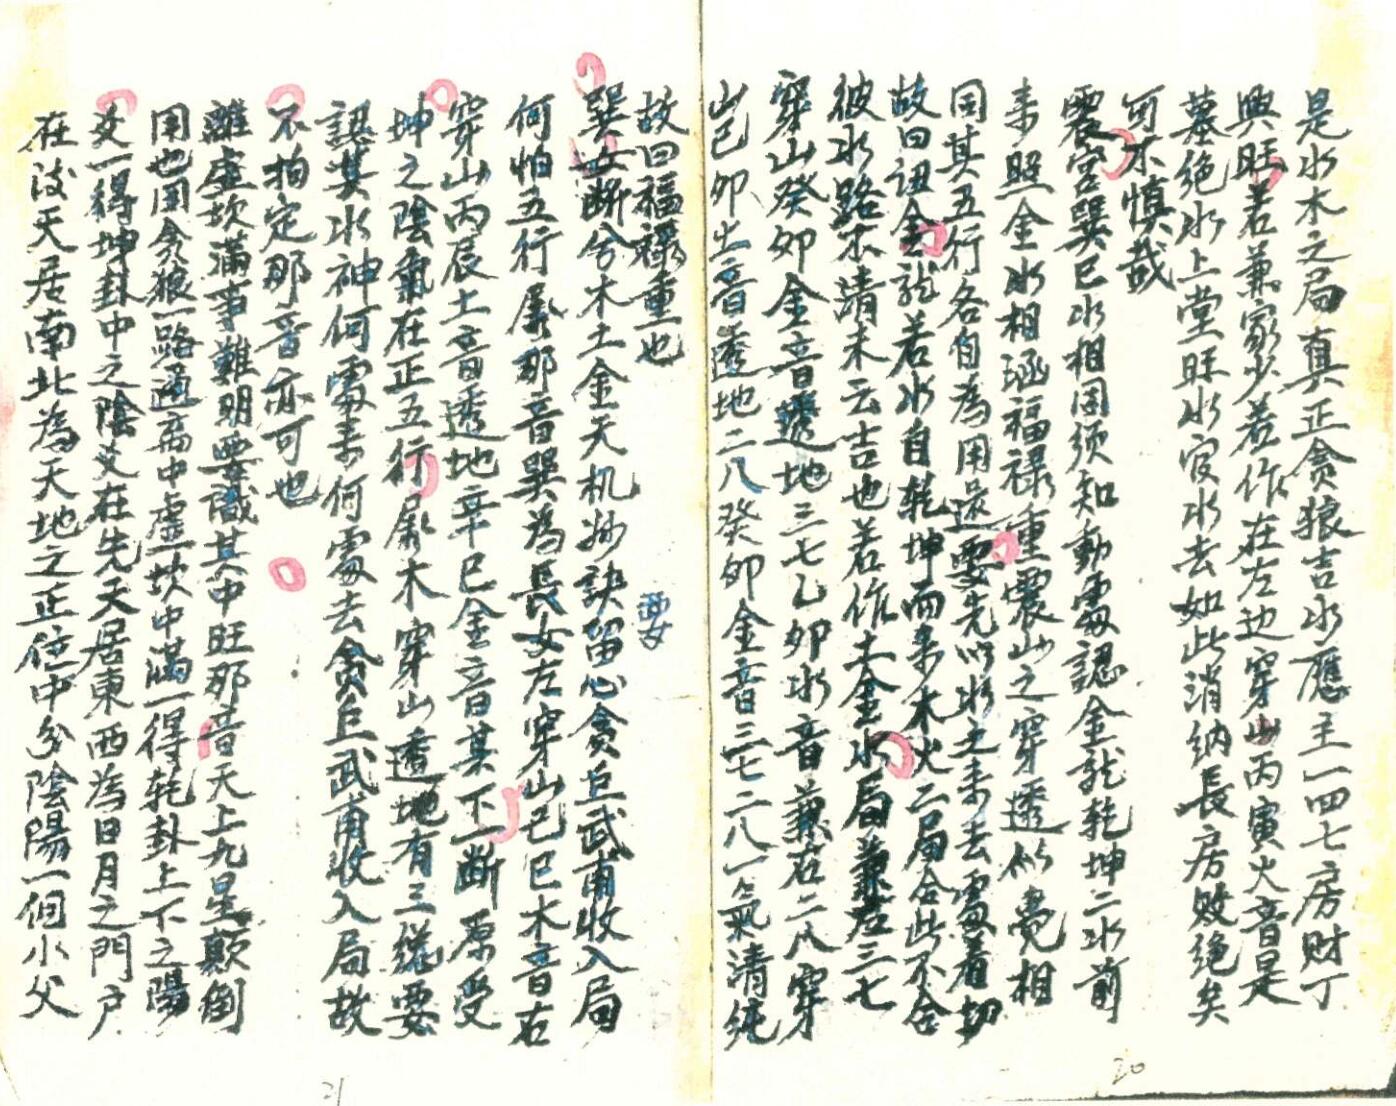 是水木之局真正貪狼吉水應主一四七房财丁
興旺若兼家少若作在左边穿山丙寅火音是
墓绝水上堂旺水官水去如此消纳長房败绝矣
可不慎哉
震宫巽巳水相同须知動處認金龙乾坤二水前
来照金水相涵福禄重震山之穿透似覺相
同其五行各自為用還要先以水之来去處着切
故曰认金龙若水自乾坤而来木火二局合此不合
彼水路不清未云吉也若作土金水局兼若三七
穿山癸卯金音透地三七乙卯水音兼若二八穿
山己卯土音透地二八癸卯金音三七二八一氣清纯
20
故曰福禄重也
巽女断兮木土金天机妙訣留心貪巨武甫收入局
何怕五行屬那音巽為長女左穿山己巳木音右
穿山丙辰土音透地辛巳金音某下一断原受
坤之陰氣在正五行屬木穿山透地有三様要
認其水神何處来何處去貪巨武甫收入局故
不拍定那音亦可也
離虚坎滿事難明要識其中旺那音天上九星颠倒
用也用贪狼一路通离中虚坎中满一得乾卦上下之陽
爻一得坤卦中之陰爻在先天居東西為日月之門户
在後天居南北為天地之正位中分陰陽一個小父
21